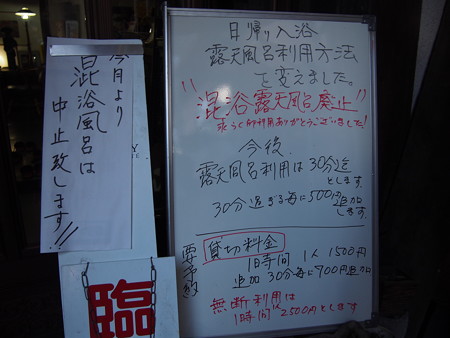 今月より
混浴風呂は
中止致します!!
臨
日帰り入浴
露天風呂利用方法
を変えました。
"混浴露天風呂廃止"
永らく御利用ありがとうございました!
今後
露天風呂利用は30分迄
とします。
30分過ぎる毎に500円追加
します。
要予約
貸切料金
1時間 1人 1500円
追加 30分毎に700円追加
無断利用は
1時間 ¥2500円とします